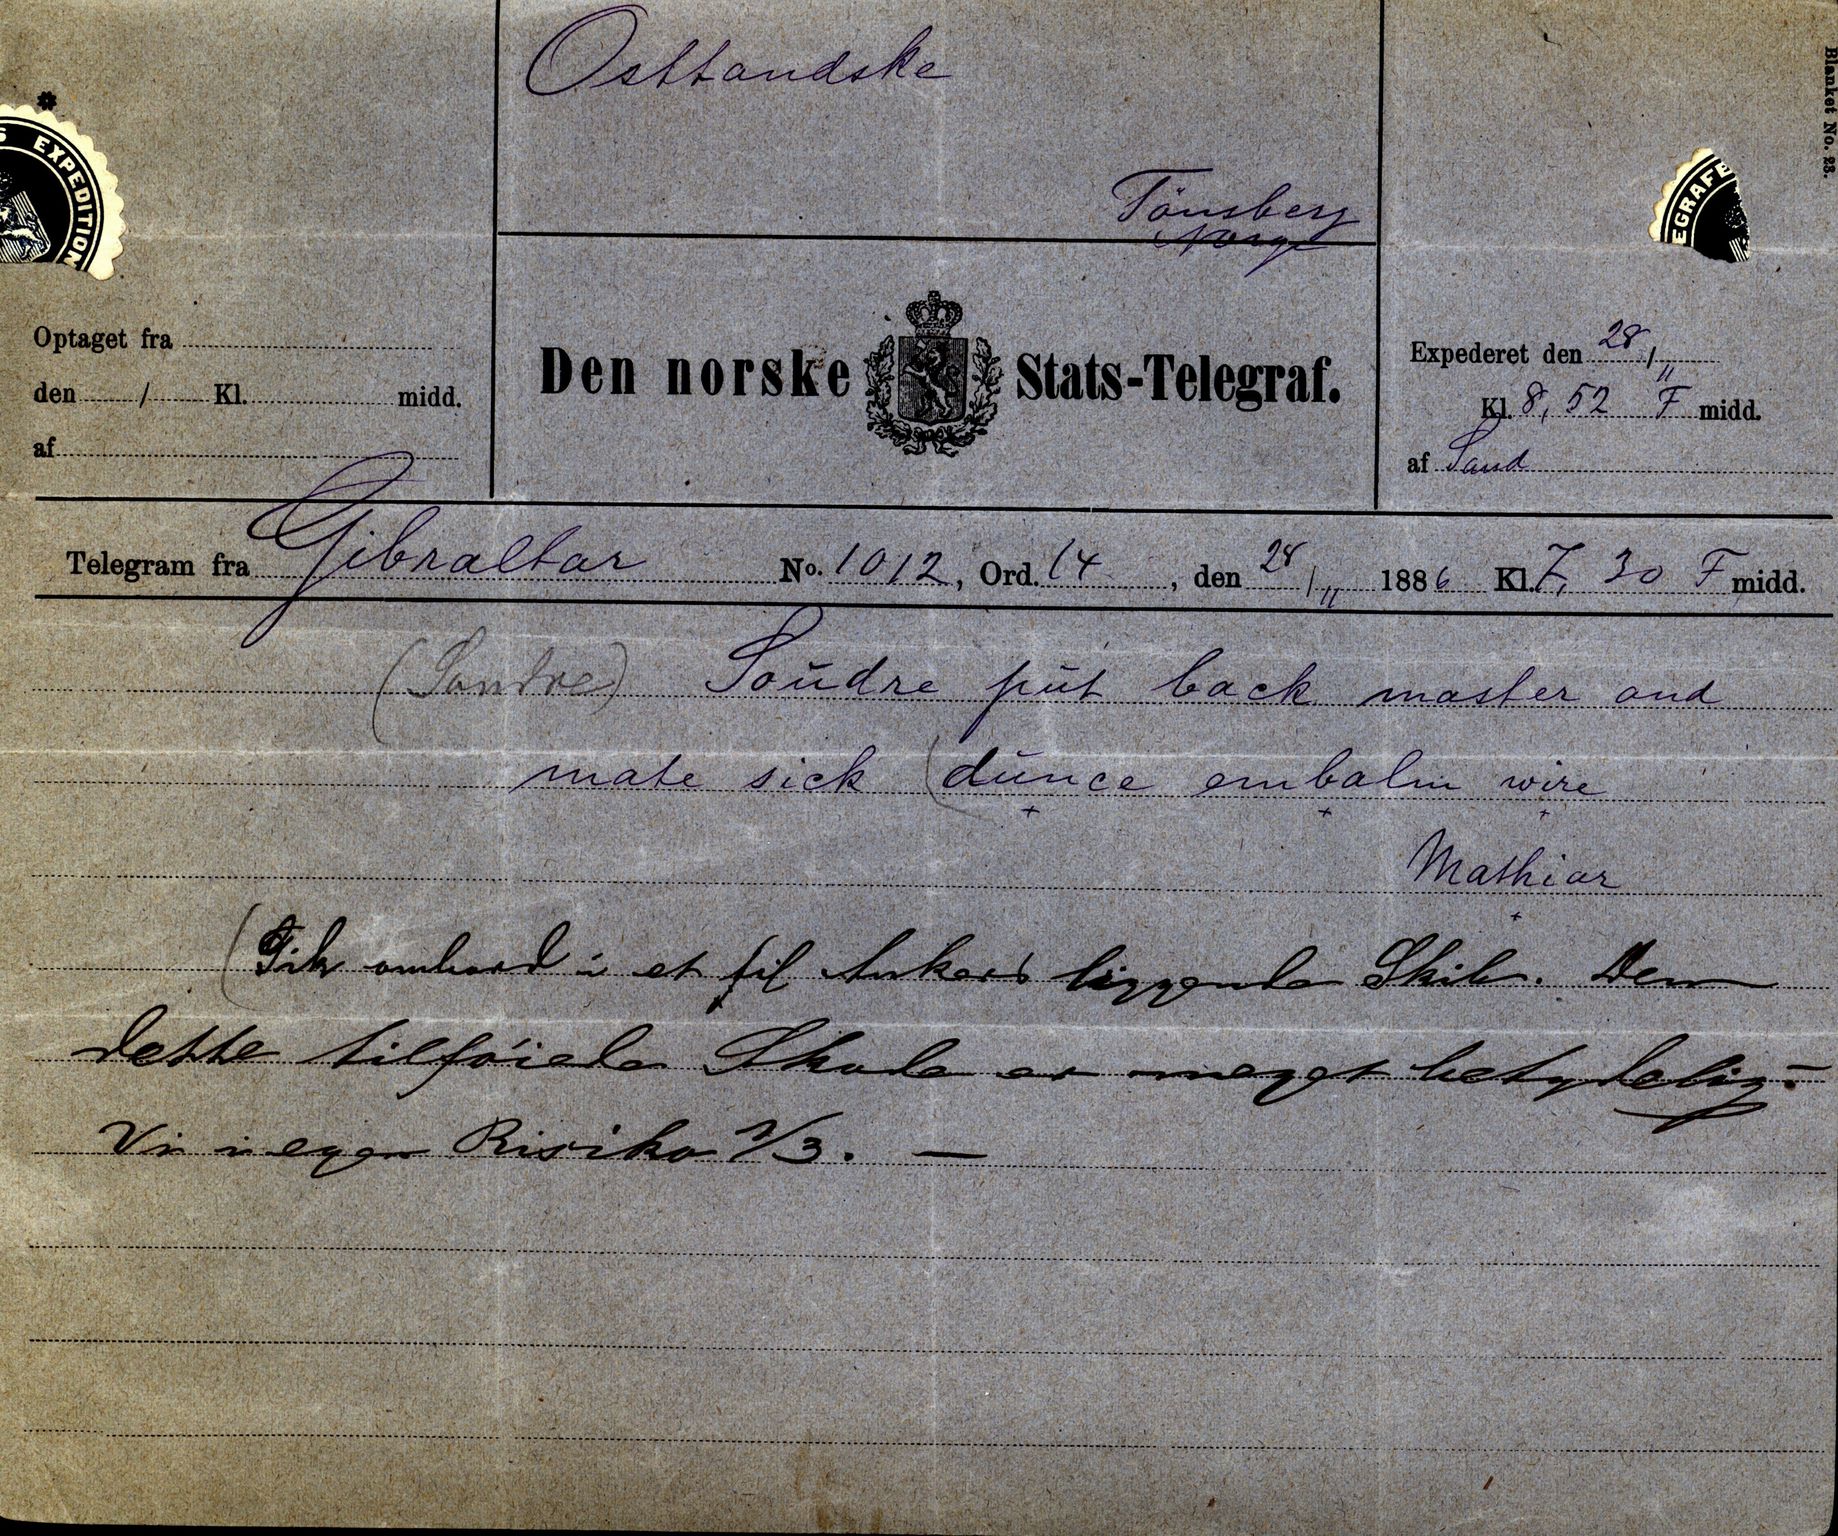 Osttandske
Tönsberg
Norge
Blanket No. 23.
S EXPEDITION
EGRAFE
Optaget fra
den / Kl. midd.
af
Den norske Stats-Telegraf.
Expederet den 28/11
Kl. 8,52 F midd.
af Sand
Telegram fra Gibraltar No. 1012, Ord. 14, den 28/11 1886 Kl. 7,30 F midd.
(Sondre) Soudre put back master and
mate sick (dunce embalm wire
Mathiar
(Fik ombord i et til Ankers liggende Skib. Den
dette tilføiede Skade er meget betydelig.-
Vi i egen Risiko 2/3. —